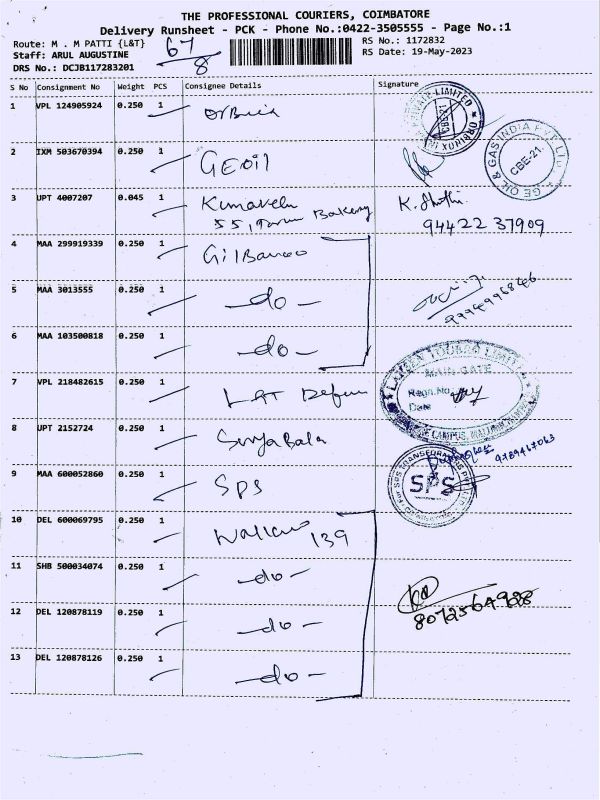 THE PROFESSIONAL COURIERS, COIMBATORE
Delivery Runsheet - PCK - Phone No.:0422-3505555 - Page No.:1
Route: M . M PATTI {L&T} 67/8 RS No.: 1172832
Staff: ARUL AUGUSTINE RS Date: 19-May-2023
DRS No.: DCJB117283201
S No Consignment No Weight PCS Consignee Details Signature
1 VPL 124905924 0.250 1
2 IXM 503670394 0.250 1 GEOil
GE OIL & GAS INDIA PVT LTD CBE-21.
3 UPT 4007207 0.045 1 Kumaravelu K. Shothi
55, Farm Bakery 94422 37909
4 MAA 299919339 0.250 1 Gilbarco
5 MAA 3013555 0.250 1 -do-
9994996846
6 MAA 103500818 0.250 1 -do-
LARSEN TOUBRO LIMIT
MAIN GATE
7 VPL 218482615 0.250 1 L&T Defen
Regn.No.
Date
8 UPT 2152724 0.250 1 SuryaBala
9789467063
9 MAA 600052860 0.250 1 SPS
SPS
10 DEL 600069795 0.250 1 139
11 SHB 500034074 0.250 1 -do-
12 DEL 120878119 0.250 1 -do-
8072564988
13 DEL 120878126 0.250 1 -do-